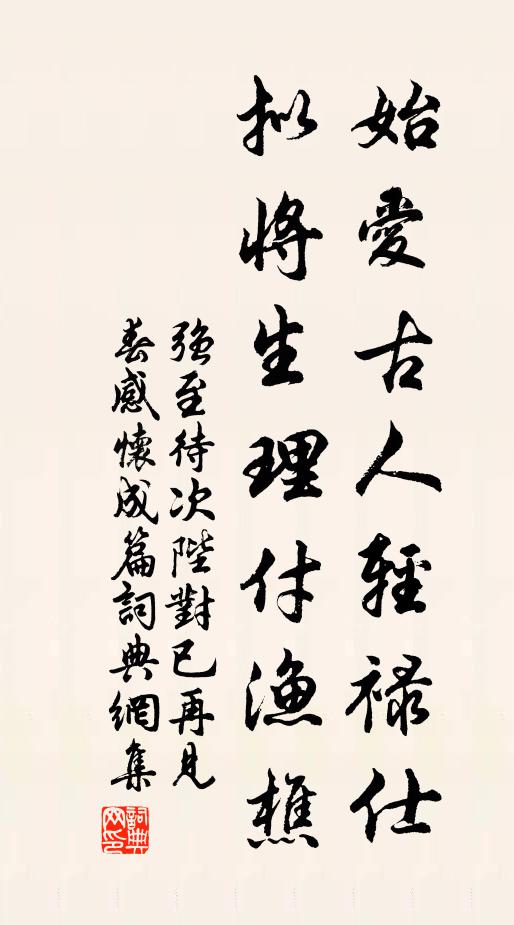 始愛古人輕祿仕
拟將生理付漁樵
强至待次陛對已再見
春感懷成篇詞典網集
詞典網印